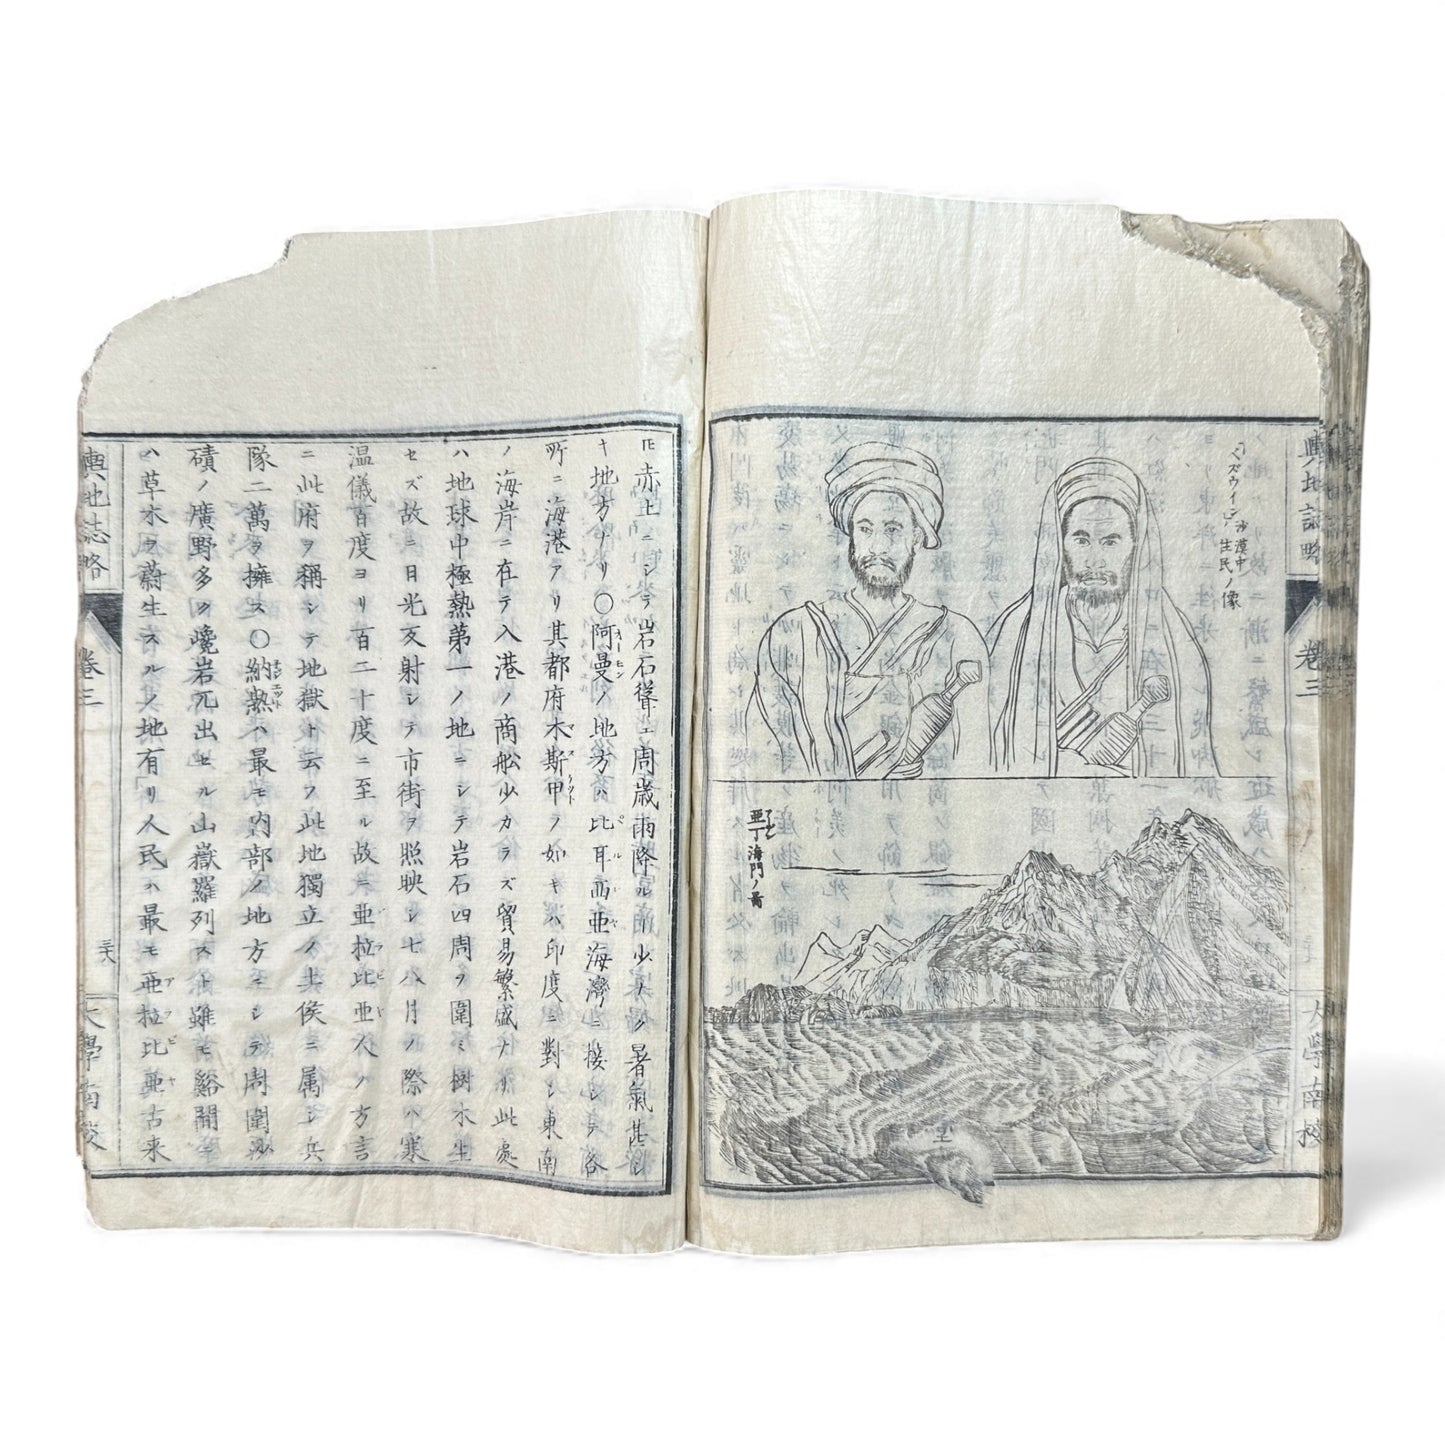 輿地誌略
卷三
大學南校
「ベズウイン」沙漠中
生民ノ像
亜丁海門ノ圖
アデン
𪜈赤土ニシテ岩石聳エ周歳雨降ル少ナク暑氣甚シ
キ地方ナリ〇阿曼ノ地方ハ比耳西亜海灣ニ接シテ各
所ニ海港アリ其都府木斯甲ノ如キハ印度ニ對シ東南
ノ海岸ニ在テ入港ノ商舩少カラズ貿易繁盛ナリ此處
ハ地球中極熱第一ノ地ニシテ岩石四周ヲ圍ミ樹木生
セズ故ニ日光反射シテ市街ヲ照映シ七八月ノ際ハ寒
温儀百度ヨリ百二十度ニ至ル故ニ亜拉比亜人ノ方言
ニ此府ヲ稱シテ地獄ト云フ此地獨立ノ土侯ニ属シ兵
隊二萬ヲ擁ス〇納熱ハ最モ内部ノ地方ニシテ周圍沙
磧ノ廣野多ク巉岩兀出セル山嶽羅列スト雖モ谿間ニ
ハ草木ヲ蔚生スルノ地有リ人民ハ最モ亜拉比亜古来
輿地誌略
卷三
三十六
大學南校